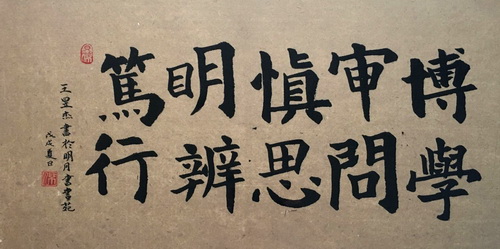 博學
审問
慎思
明辨
篤行
王星杰書於明月書學苑
戊戌夏日